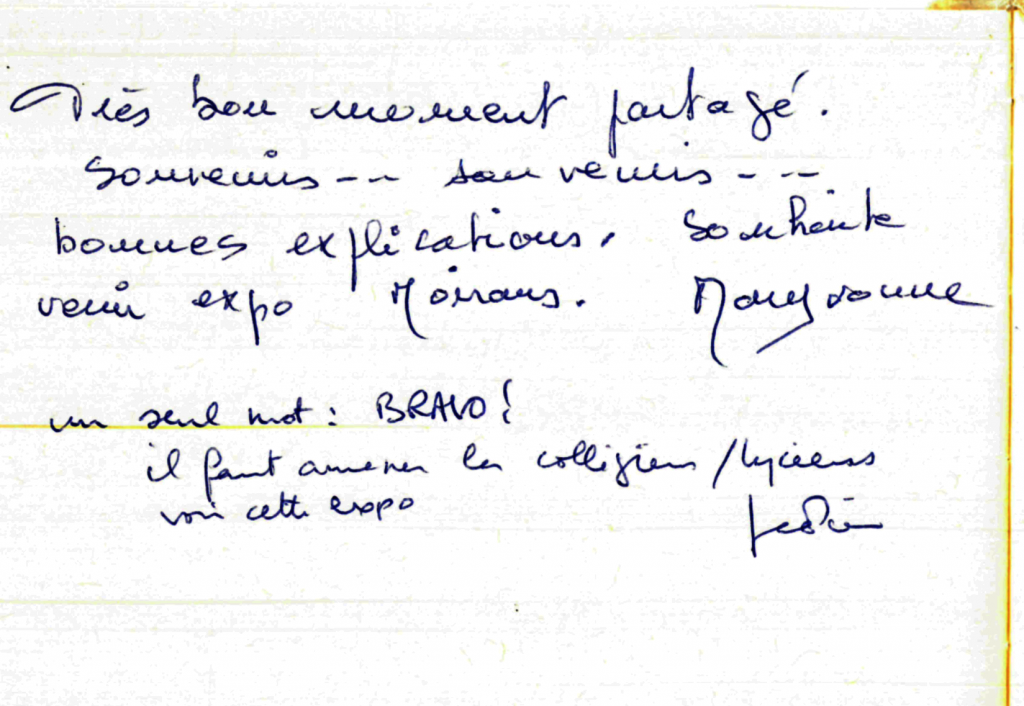 Très bon moment partagé.
Souvenirs -- souvenirs --
bonnes explications. Souhaite
venir expo Moirans. Maryvonne
un seul mot : BRAVO !
il faut amener les collégiens / lycéens
voir cette expo